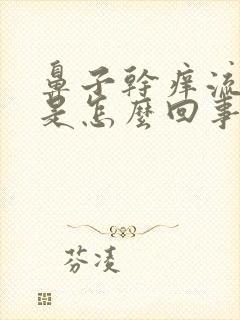 鼻子幹痒流
是怎麼回事
芬凌